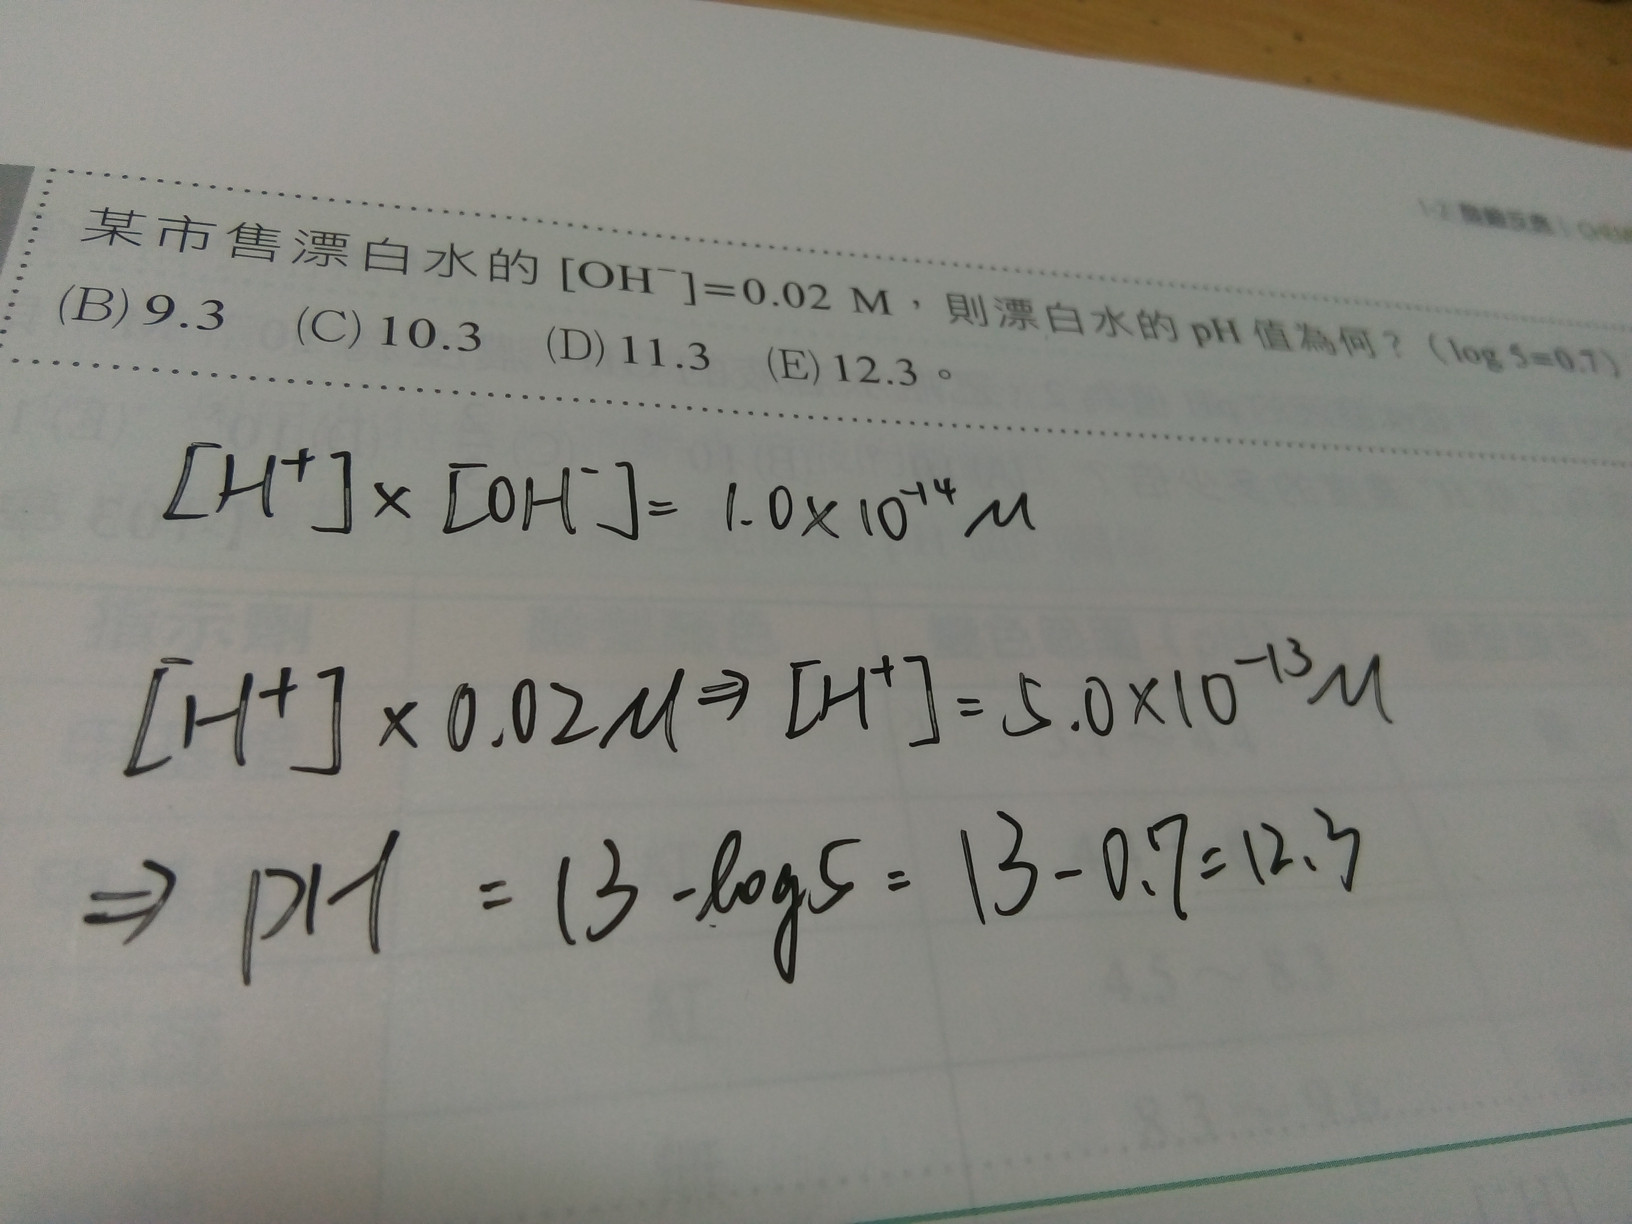 某市售漂白水的 [OH⁻]=0.02 M，則漂白水的 pH 值為何？（log 5=0.7）
(B) 9.3 (C) 10.3 (D) 11.3 (E) 12.3。
[H⁺]×[OH⁻]= 1.0×10⁻¹⁴M
[H⁺]×0.02M⇒[H⁺]=5.0×10⁻¹³M
⇒ pH = 13-log5= 13-0.7=12.3